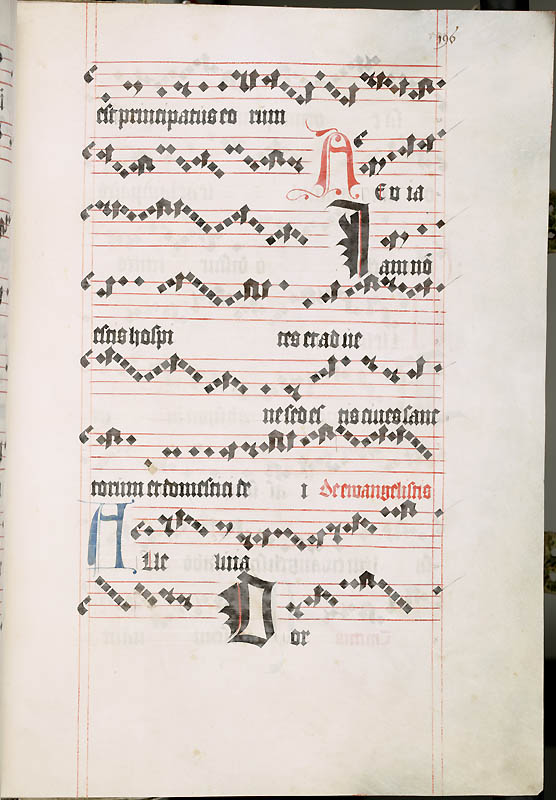 196
est principatus eo rum
A
Ev ia
Iam nō
estis hospi tes et ad ue
ne sed es tis ciues sanc
torum et domestici de i De ewangelistis
Alle luia
Dor